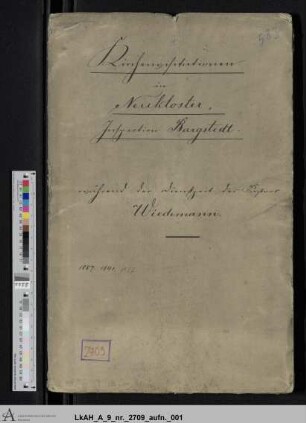 Kirchenvisitationen
in
Neukloster,
Inspection Bargstedt.
während der Dienstzeit des Pastors
Wiedemann.
2709
LkAH_A_9_nr._2709_aufn._001